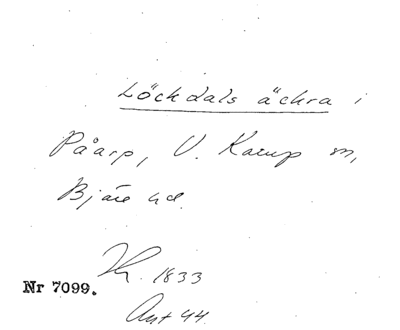 Löckdals äckra i
Påarp, V. Karup sn,
Bjäre hd.
1833
Nr 7099.
Akt 44